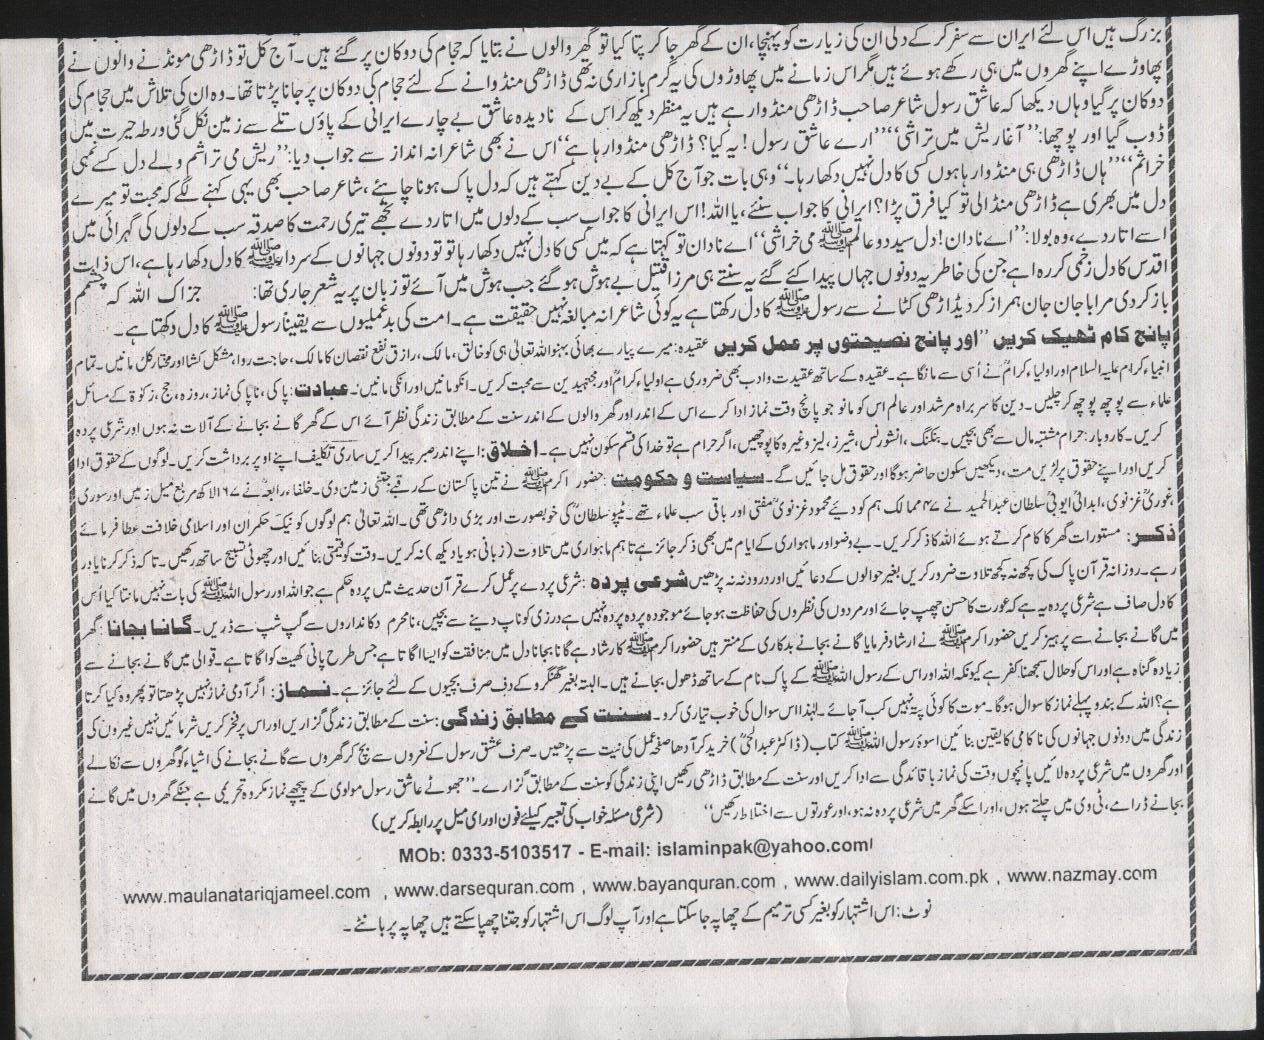 بزرگ ہیں اس لئے ایران سے سفر کر کے دلی ان کی زیارت کو پہنچا، ان کے گھر جا کر پتا کیا تو گھر والوں نے بتایا کہ حجام کی دوکان پر گئے ہیں۔ آج کل تو ڈاڑھی مونڈنے والوں نے
پھاوڑے اپنے گھروں میں ہی رکھے ہوئے ہیں مگر اس زمانے میں پھاوڑوں کی یہ گرم بازاری نہ تھی ڈاڑھی منڈوانے کے لئے حجام کی دوکان پر جانا پڑتا تھا۔ وہ ان کی تلاش میں حجام کی
دوکان پر گیا وہاں دیکھا کہ عاشق رسول شاعر صاحب ڈاڑھی منڈوا رہے ہیں یہ منظر دیکھ کر اس کے نادیدہ عاشق بے چارے ایرانی کے پاؤں تلے سے زمین نکل گئی ورطہ حیرت میں
ڈوب گیا اور پوچھا: ’’آغا ریش میں تراشی‘‘ ’’ارے عاشق رسول! یہ کیا؟ ڈاڑھی منڈوا رہا ہے‘‘ اس نے بھی شاعرانہ انداز سے جواب دیا: ’’ریش می تراشم ولے دل کسے نمی
خراشم‘‘ ’’ہاں ڈاڑھی ہی منڈوا رہا ہوں کسی کا دل نہیں دکھا رہا۔‘‘ وہی بات جو آج کل کے بے دین کہتے ہیں کہ دل پاک ہونا چاہئے، شاعر صاحب بھی یہی کہنے لگے کہ محبت تو میرے
دل میں بھری ہے ڈاڑھی منڈالی تو کیا فرق پڑا؟ ایرانی کا جواب سنئے، یا اللہ! اس ایرانی کا جواب سب کے دلوں میں اتار دے تجھے تیری رحمت کا صدقہ سب کے دلوں کی گہرائی میں
اسے اتار دے، وہ بولا: ’’اے نادان! دل سید دو عالم ﷺ می خراشی‘‘ اے نادان تو کہتا ہے کہ میں کسی کا دل نہیں دکھا رہا تو تو دونوں جہانوں کے سردار ﷺ کا دل دکھا رہا ہے، اس ذات
اقدس کا دل زخمی کر رہا ہے جن کی خاطر یہ دونوں جہاں پیدا کئے گئے یہ سنتے ہی مرزا قتیل بے ہوش ہو گئے جب ہوش میں آئے تو زبان پر یہ شعر جاری تھا: جزاک اللہ کہ چشمم
باز کردی مرا با جان جان ہمراز کردی ڈاڑھی کٹانے سے رسول ﷺ کا دل رکھتا ہے یہ کوئی شاعرانہ مبالغہ نہیں حقیقت ہے۔ امت کی بدعملیوں سے یقیناً رسول ﷺ کا دل دکھتا ہے۔
پانچ کام ٹھیک کریں ’’اور پانچ نصیحتوں پر عمل کریں عقیدہ: میرے پیارے بھائی بہنو اللہ تعالیٰ ہی کو خالق، مالک، رازق نفع نقصان کا مالک، حاجت روا، مشکل کشا اور مختار کل مانیں۔ تمام
انبیاء کرام علیہ السلام اور اولیاء کرامؒ نے اُسی سے مانگا ہے۔ عقیدہ کے ساتھ عقیدت و ادب بھی ضروری ہے اولیاء کرامؒ اور مجتہدین سے محبت کریں۔ انکو مانیں اور انکی مانیں۔ عبادت: پاکی، ناپاکی نماز، روزہ، حج، زکوٰۃ کے مسائل
علماء سے پوچھ پوچھ کر چلیں۔ دین کا سربراہ مرشد اور عالم اس کو مانو جو پانچ وقت نماز ادا کرے اس کے اندر اور گھر والوں کے اندر سنت کے مطابق زندگی نظر آئے اس کے گھر گانے بجانے کے آلات نہ ہوں اور شرعی پردہ
کریں۔ کاروبار: حرام مشتبہ مال سے بھی بچیں۔ بنکنگ، انشورنس، شیرز، لیز وغیرہ کا پوچھیں، اگر حرام ہے تو خدا کی قسم سکون نہیں ہے۔ اخلاق: اپنے اندر صبر پیدا کریں ساری تکلیف اپنے اوپر برداشت کریں۔ لوگوں کے حقوق ادا
کریں اور اپنے حقوق پر لڑیں مت، دیکھیں سکون حاضر ہوگا اور حقوق مل جائیں گے۔ سیاست و حکومت: حضور اکرم ﷺ نے تین پاکستان کے رقبے جتنی زمین دی۔ خلفاء رابعہؓ نے ۶۷ الاکھ مربع میل زمیں اور سوری
غوریؒ غزنوی، ابدالی ایوبیؒ سلطان عبدالحمید نے ۴۷ ممالک ہم کو دیے محمود غزنویؒ مفتی اور باقی سب علماء تھے۔ ٹیپو سلطانؒ کی خوبصورت اور بڑی داڑھی تھی۔ اللہ تعالیٰ ہم لوگوں کو نیک حکمران اور اسلامی خلافت عطا فرمائے
ذکر: مستورات گھر کا کام کرتے ہوئے اللہ کا ذکر کریں۔ بے وضو اور ماہواری کے ایام میں بھی ذکر جائز ہے تاہم ماہواری میں تلاوت (زبانی ہو یا دیکھ) نہ کریں۔ وقت کو قیمتی بنائیں اور چھوٹی تسبیح ساتھ رکھیں۔ تاکہ ذکر کرنا یاد
رہے۔ روزانہ قرآن پاک کی کچھ نہ کچھ تلاوت ضرور کریں بغیر حوالوں کے دعائیں اور درود نہ نہ پڑھیں شرعی پردہ: شرعی پردے پر عمل کرے قرآن حدیث میں پردہ حکم ہے جو اللہ اور رسول اللہ ﷺ کی بات نہیں مانتا کیا اُس
کا دل صاف ہے شرعی پردہ یہ ہے کہ عورت کا حسن چھپ جائے اور مردوں کی نظروں کی حفاظت ہو جائے موجودہ پردہ پردہ نہیں ہے درزی کو ناپ دینے سے بچیں، نامحرم دکانداروں سے گپ شپ سے ڈریں۔ گانا بجانا: گھر
میں گانے بجانے سے پرہیز کریں حضور اکرم ﷺ نے ارشاد فرمایا گانے بجانے بدکاری کے منتر ہیں حضور اکرم ﷺ کا رشاد ہے گانا بجانا دل میں منافقت کو ایسا اگاتا ہے جس طرح پانی کھیت کو اگاتا ہے۔ قوالی میں گانے بجانے سے
زیادہ گناہ ہے اور اس کو حلال سمجھنا کفر ہے کیونکہ اللہ اور اس کے رسول اللہ ﷺ کے پاک نام کے ساتھ ڈھول بجانے ہیں۔ البتہ بغیر گھنگرو کے دف صرف بچیوں کے لئے جائز ہے۔ نماز: اگر آدمی نماز نہیں پڑھتا تو پھر وہ کیا کرتا
ہے؟ اللہ کے بندو پہلے نماز کا سوال ہوگا۔ موت کا کوئی پتہ نہیں کب آجائے۔ لہٰذا اس سوال کی خوب تیاری کرو۔ سنت کے مطابق زندگی: سنت کے مطابق زندگی گزاریں اور اس پر فخر کریں شرمائیں نہیں غیروں کی
زندگی میں دونوں جہانوں کی ناکامی کا یقین بنائیں اسوۂ رسول اللہ ﷺ کتاب (ڈاکٹر عبدالحئیؒ) خرید کر آدھا صفحہ عمل کی نیت سے پڑھیں۔ صرف عشق رسول کے نعروں سے بچ کر گھروں سے گانے بجانے کی اشیاء کو گھروں سے نکالے
اور گھروں میں شرعی پردہ لائیں پانچوں وقت کی نماز باقائدگی سے ادا کریں اور سنت کے مطابق ڈاڑھی رکھیں اپنی زندگی کو سنت کے مطابق گزارے۔ ’’جھوٹے عاشق رسول مولوی کے پیچھے نماز مکروہ تحریمی ہے جنکے گھروں میں گانے
بجانے ڈرامے، ٹی وی میں چلتے ہوں، اور اسکے گھر میں شرعی پردہ نہ ہو، اور عورتوں سے اختلاط رکھیں‘‘ (شرعی مسئلہ خواب کی تعبیر کیلئے فون اور ای میل پر رابطہ کریں)
MOb: 0333-5103517 - E-mail: islaminpak@yahoo.com
www.maulanatariqjameel.com , www.darsequran.com , www.bayanquran.com , www.dailyislam.com.pk , www.nazmay.com
نوٹ: اس اشتہار کو بغیر کسی ترمیم کے چھاپہ جا سکتا ہے اور آپ لوگ اس اشتہار کو جتنا چھپا سکتے ہیں چھاپہ پر بانٹے۔